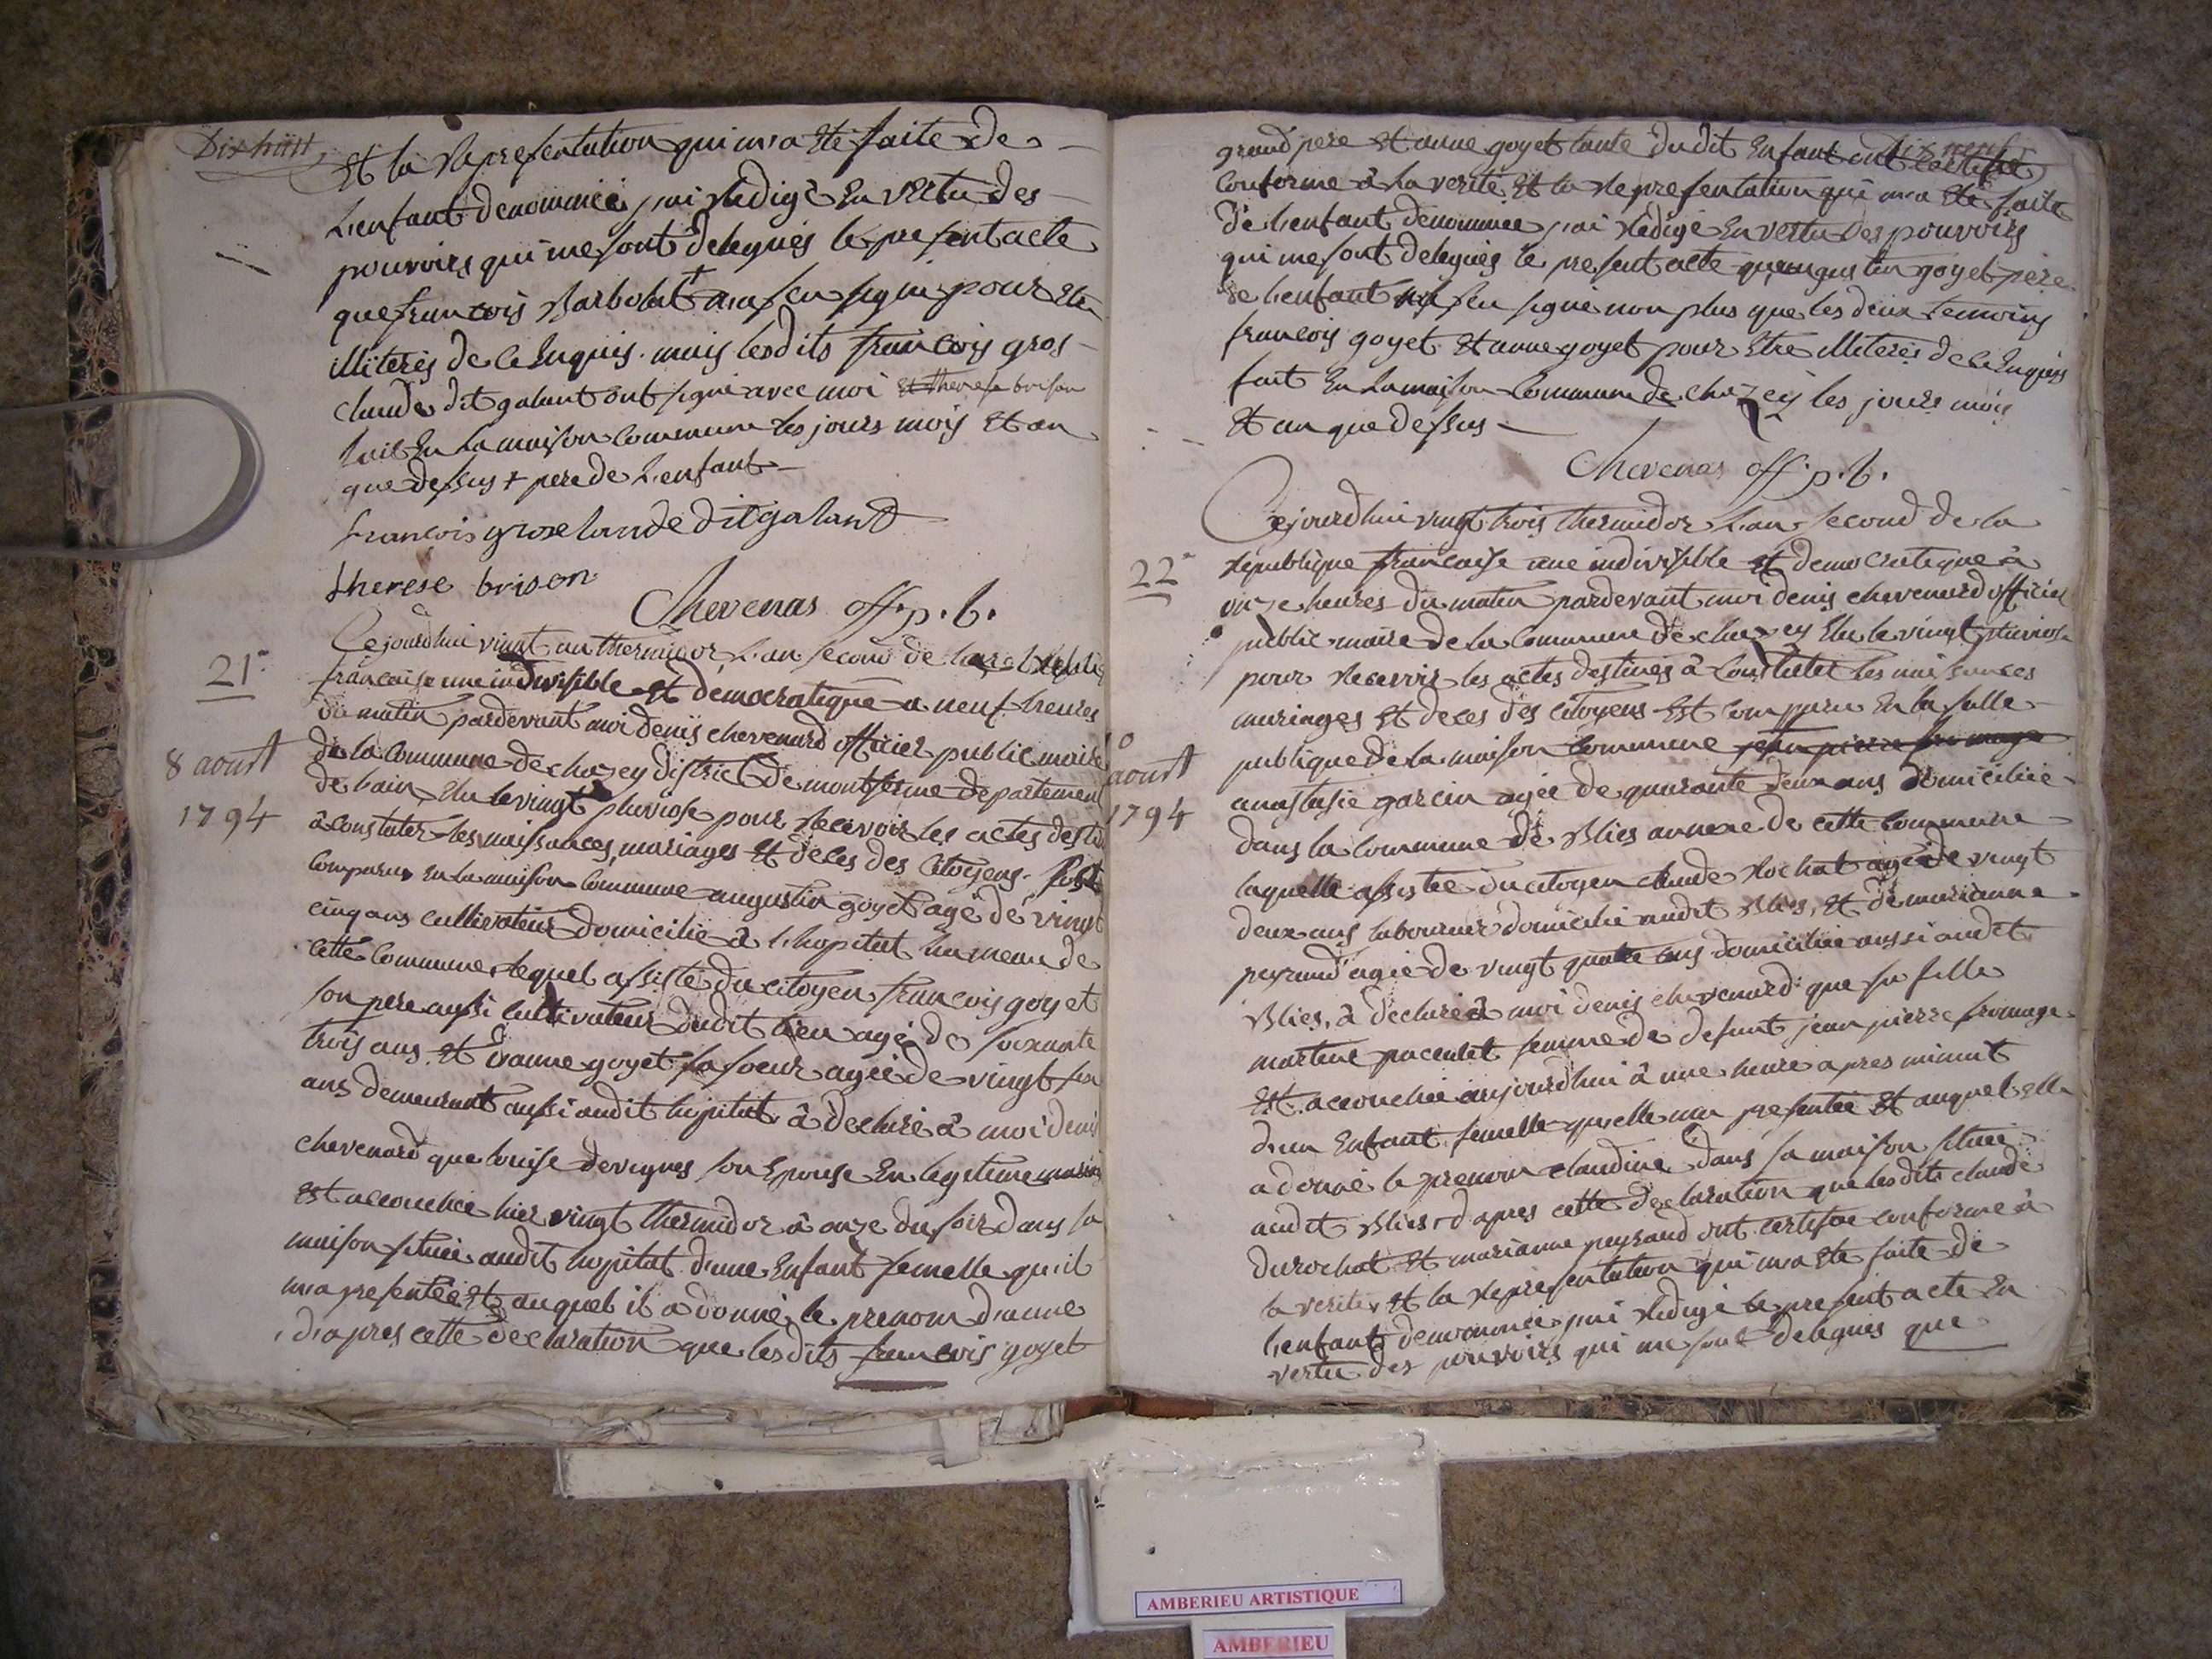 Dix huit
Et la representation qui m'a Eté faite de
L'enfant denommée j'ai Redigé En vertu des
pouvoirs qui me sont delegués le present acte
que francois Barbolat + n'a seu signé pour Etre
illiteré de ce Enquis. mais lesdits francois gros
claude dit galant ont signé avec moi et therese brison
fait En la maison commune les jours mois Et an
que dessus + pere de L'enfant
francois groselaude dit galant
therese brison
Chevenas off. p. b.
21e
8 aoust
1794
Cejourdhui vingt un thermidor L'an second de la republique
francaise une indivisible et democratique a neuf heures
du matin pardevant moi denis chevenard officier public maire
de la commune de chazey district de montferme departement
de l'ain Elu le vingt pluviose pour Recevoir les actes destinés
à constater les naissances, mariages Et déces des Citoyens. Est
comparu En la maison commune augustin goyet agé de vingt
cinq ans cultivateur domicilié à L'hopital hameau de
cette commune, lequel assisté du citoyen francois goyet
son pere aussi cultivateur dudit lieu agé de soixante
trois ans Et d'anne goyet sa soeur agée de vingt six
ans demeurant aussi audit hopital, à déclaré à moi denis
chevenard que louise devignes son Epouse En legitime mariage
Est accouchée hier vingt thermidor à onze du soir dans sa
maison située audit hopital d'une Enfant femelle qu'il
m'a presentée Et auquel il a donné le prenom d'anne
d'apres cette déclaration que lesdits francois goyet
dix neuf
grand pere Et anne goyet tante dudit Enfant ont certifié
conforme à la verité Et la Representation qui m'a Eté faite
de L'enfant denommée j'ai Rédigé En vertu des pouvoirs
qui me sont delegués le present acte qu'augustin goyet pere
de L'enfant n'a seu signé non plus que les deux temoins
francois goyet Et anne goyet pour Etre illiterés de ce Enquis
fait En La maison Commune de chazey les jours mois
Et an que dessus
Chevenas off. p. b.
22e
aoust
1794
Cejourdhui vingt trois thermidor L'an second de la
République francaise une indivisible Et democratique à
onze heures du matin pardevant moi denis chevenard officier
public maire de la commune de chazey Elu le vingt pluviose
pour Recevoir les actes destinés à Constater les naissances
mariages Et deces des citoyens Est comparu En la salle
publique de la maison commune jean pierre fromage
anastasie garcin agée de quarante deux ans domiciliée
dans la commune de Blies annexe de cette commune
laquelle assistée du citoyen claude Rochat agé de vingt
deux ans laboureur domicilié audit Blies, Et de marianne
peysaud agée de vingt quatre ans domiciliée aussi audit
Blies, à déclaré à moi denis chevenard que sa fille
marteue pacentet femme de defunt jean pierre fromage
Est accouchée aujourdhui à une heure apres minuit
d'un Enfant femelle quelle m'a presentée Et auquel elle
a donné le prenom claudine dans sa maison située
audit Blies. d'apres cette déclaration que lesdits claude
durochat Et marianne peysaud ont certifié conforme à
la verité, Et la Representation qui m'a Eté faite de
L'enfant denommée j'ai Rédigé le present acte En
vertu des pouvoirs qui me sont delegués que
AMBERIEU ARTISTIQUE
AMBERIEU